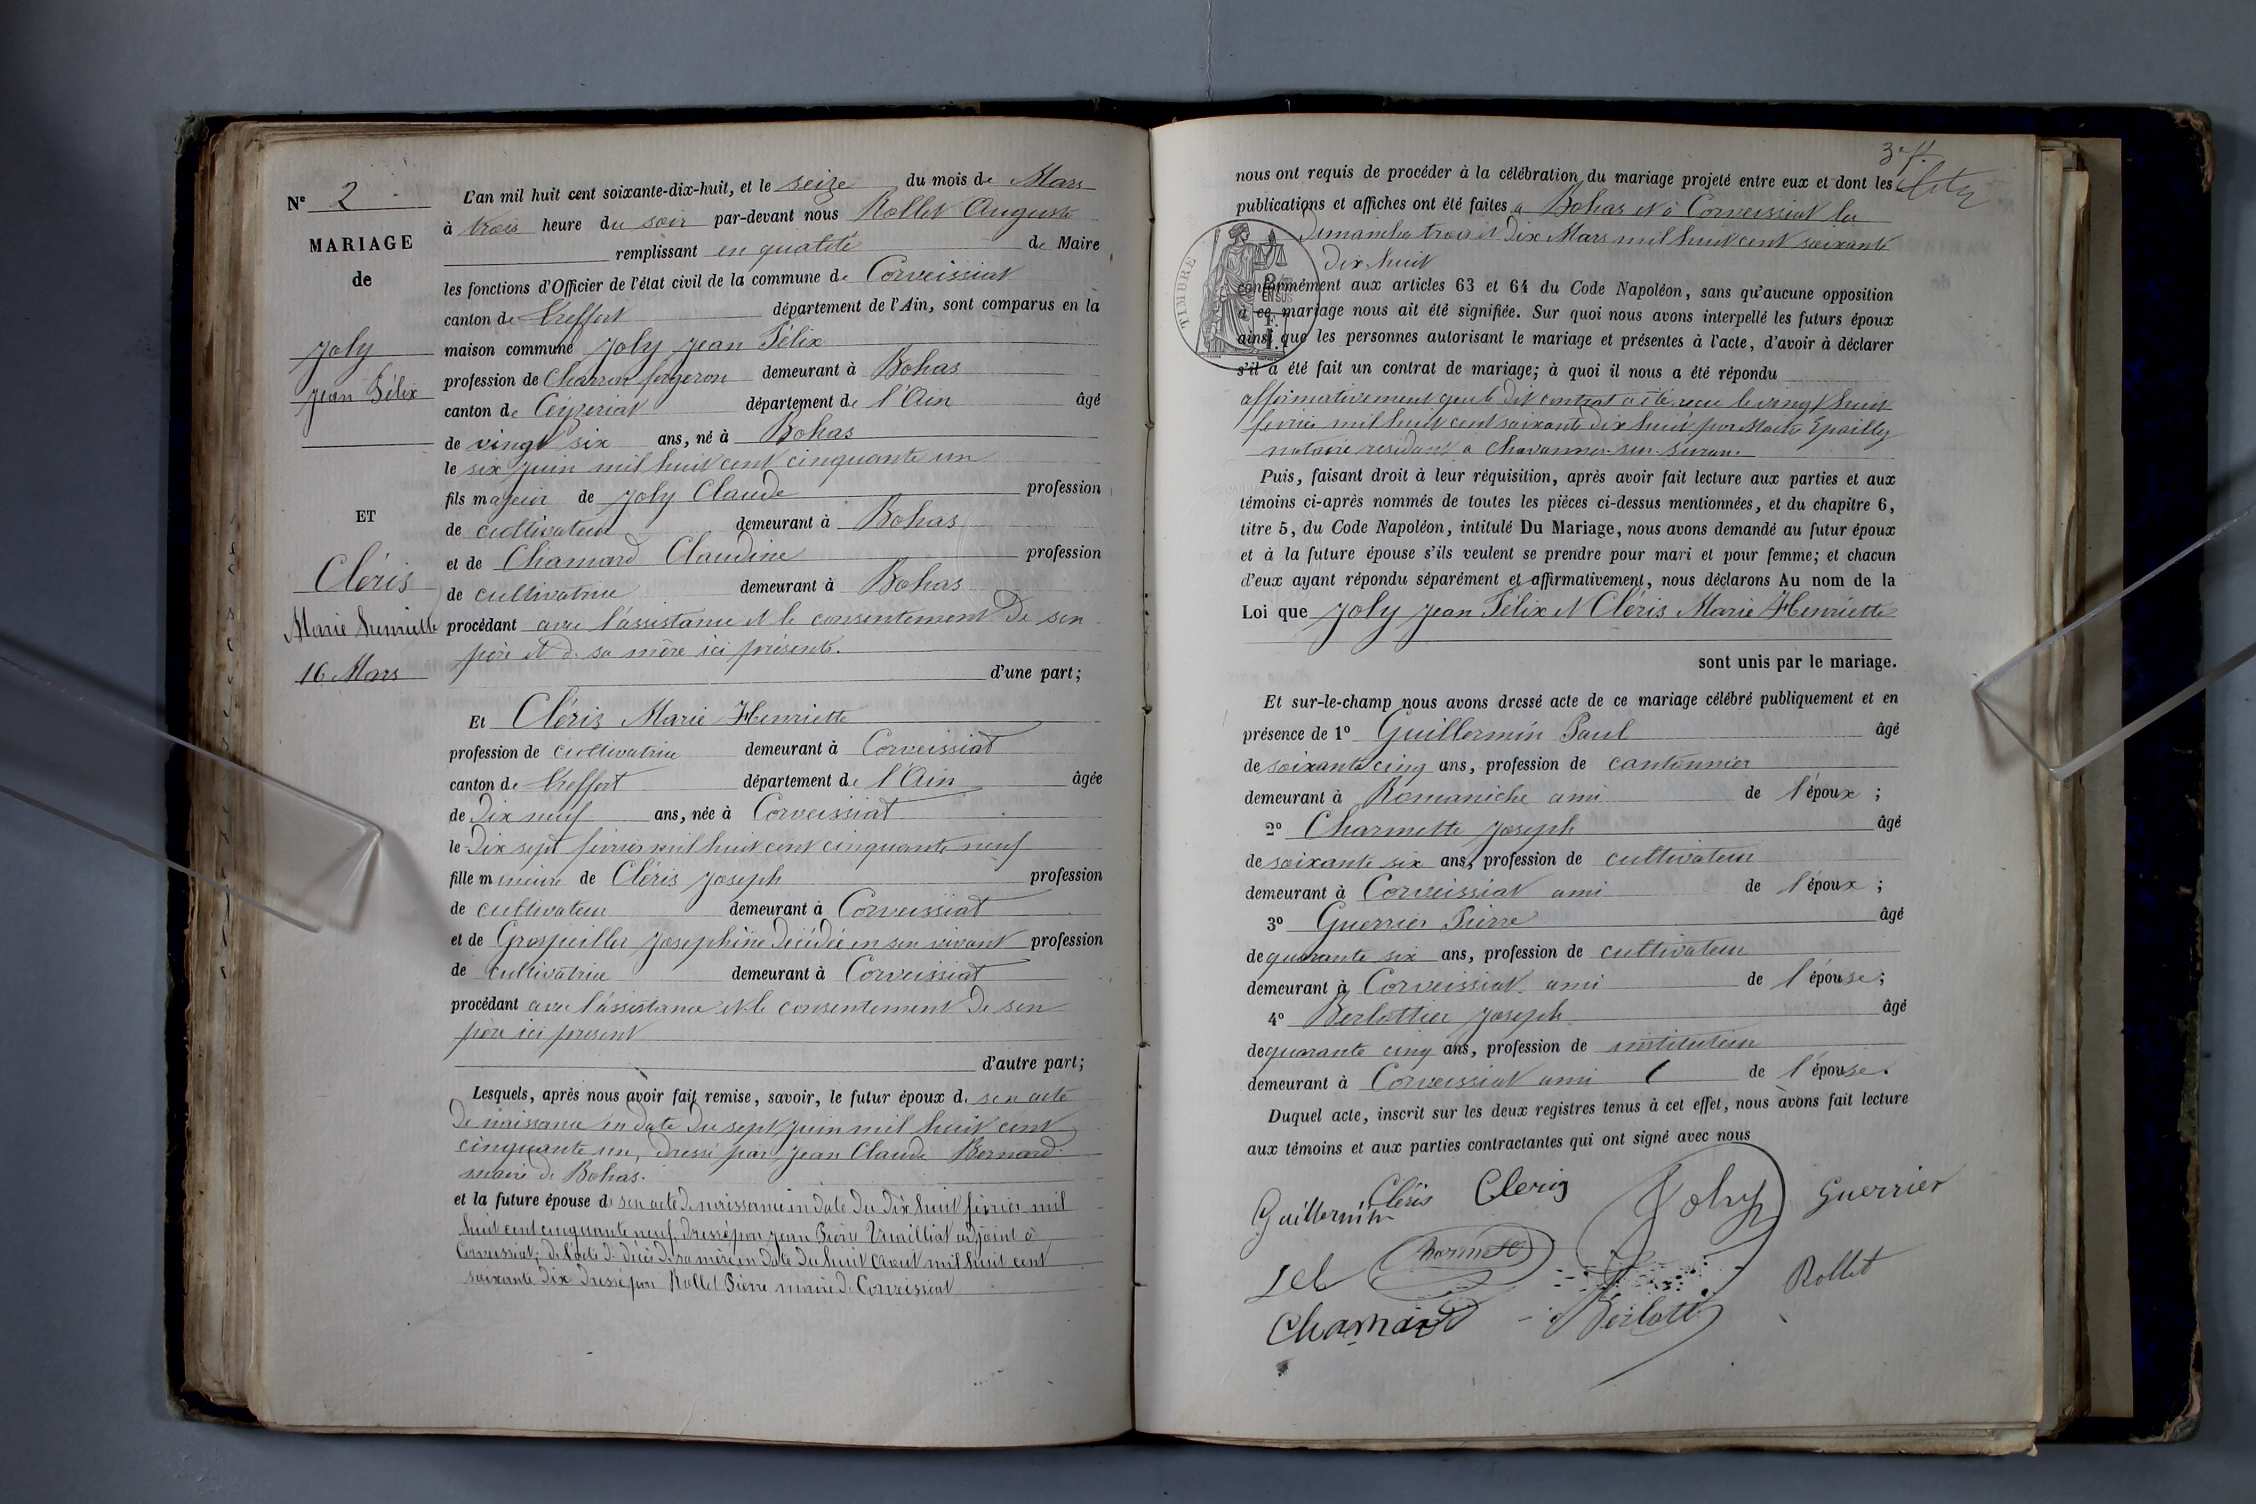 N° 2
MARIAGE
de
Joly
Jean Félix
ET
Cléris
Marie henriette
16 Mars
L'an mil huit cent soixante-dix-huit, et le seize du mois de Mars
à trois heure du soir par-devant nous Rollet Auguste
remplissant en qualité de Maire
les fonctions d'Officier de l'état civil de la commune de Corveissiat
canton de Treffort département de l'Ain, sont comparus en la
maison commune Joly Jean Félix
profession de Charron forgeron demeurant à Bohas
canton de Ceyzeriat département de l'Ain âgé
de vingt six ans, né à Bohas
le six juin mil huit cent cinquante un
fils majeur de Joly Claude profession
de cultivateur demeurant à Bohas
et de Chamard Claudine profession
de cultivatrice demeurant à Bohas
procédant avec l'assistance et le consentement de son
père et de sa mère ici présents.
d'une part;
Et Cléris Marie Henriette
profession de cultivatrice demeurant à Corveissiat
canton de Treffort département de l'Ain âgée
de Dix neuf ans, née à Corveissiat
le Dix sept février mil huit cent cinquante neuf
fille mineure de Cléris Joseph profession
de cultivateur demeurant à Corveissiat
et de Grospeiller Josephine Décédée en son vivant profession
de cultivatrice demeurant à Corveissiat
procédant avec l'assistance et le consentement de son
père ici present
d'autre part;
Lesquels, après nous avoir fait remise, savoir, le futur époux de son acte
de naissance en date du sept juin mil huit cent
cinquante un, dressé par Jean Claude Bernard
maire de Bohas.
et la future épouse de son acte de naissance en date du dix huit février mil
huit cent cinquante neuf dressé par Jean Pierre adjoint à
Corveissiat; de l'acte de décès de sa mère en date du huit Aout mil huit cent
soixante dix dressé par Rollet Pierre maire de Corveissiat
37
nous ont requis de procéder à la célébration du mariage projeté entre eux et dont les
publications et affiches ont été faites a Bohas et à Corveissiat les
dimanches trois et dix Mars mil huit cent soixante
dix huit
TIMBRE
2/10 EN SUS
conformément aux articles 63 et 64 du Code Napoléon, sans qu'aucune opposition
à ce mariage nous ait été signifiée. Sur quoi nous avons interpellé les futurs époux
ainsi que les personnes autorisant le mariage et présentes à l'acte, d'avoir à déclarer
s'il a été fait un contrat de mariage; à quoi il nous a été répondu
affirmativement que le dit contrat a été reçu le vingt huit
février mil huit cent soixante dix huit par Maitre Epailly
notaire residant à Chavannes-sur-Suran.
Puis, faisant droit à leur réquisition, après avoir fait lecture aux parties et aux
témoins ci-après nommés de toutes les pièces ci-dessus mentionnées, et du chapitre 6,
titre 5, du Code Napoléon, intitulé Du Mariage, nous avons demandé au futur époux
et à la future épouse s'ils veulent se prendre pour mari et pour femme; et chacun
d'eux ayant répondu séparément et affirmativement, nous déclarons Au nom de la
Loi que Joly Jean Félix et Cléris Marie Henriette
sont unis par le mariage.
Et sur-le-champ nous avons dressé acte de ce mariage célébré publiquement et en
présence de 1° Guillermin Paul âgé
de soixante cinq ans, profession de cantonnier
demeurant à Romaniche ami de l'époux;
2° Charnette Joseph âgé
de soixante six ans, profession de cultivateur
demeurant à Corveissiat ami de l'époux;
3° Guerrier Pierre âgé
de quarante six ans, profession de cultivateur
demeurant à Corveissiat ami de l'épouse;
4° Berlottier Joseph âgé
de quarante cinq ans, profession de instituteur
demeurant à Corveissiat ami de l'épouse.
Duquel acte, inscrit sur les deux registres tenus à cet effet, nous avons fait lecture
aux témoins et aux parties contractantes qui ont signé avec nous
Guillermin Cléris Cleris Joly Guerrier
Charnette Rollet
Chamard